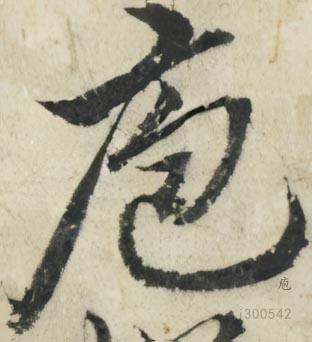 庖
庖
i300542